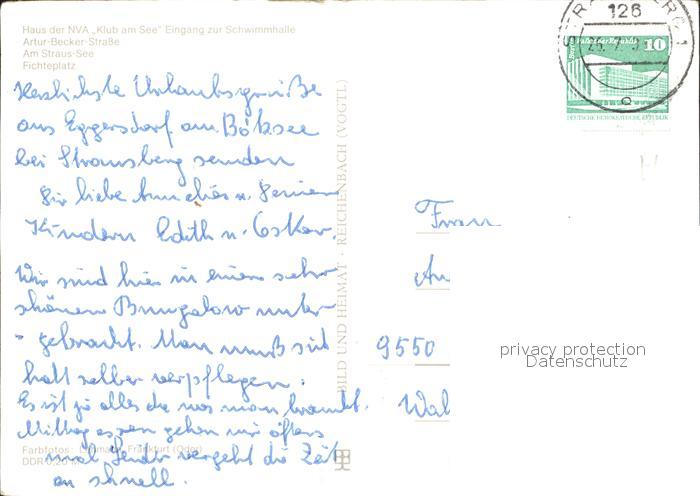 Haus der NVA „Klub am See" Eingang zur Schwimmhalle
Artur-Becker-Straße
Am Straus-See
Fichteplatz
Herzlichste Urlaubsgrüße
aus Eggersdorf am Bötzsee
bei Strausberg senden
Dir liebe u. Deinen
Kindern Edith u. Oskar.
Wir sind hier in einem sehr
schönen Bungalow unter-
gebracht. Man muß sich
halt selber verpflegen.
Es ist ja alles da was man braucht.
Mittag essen gehen wir öfters
mal. Leider vergeht die Zeit
zu schnell.
Farbfotos: Frankfurt (Oder)
DDR 0,20 M
BILD UND HEIMAT · REICHENBACH (VOGTL)
126
10
DEUTSCHE DEMOKRATISCHE REPUBLIK
Frau
9550
privacy protection
Datenschutz